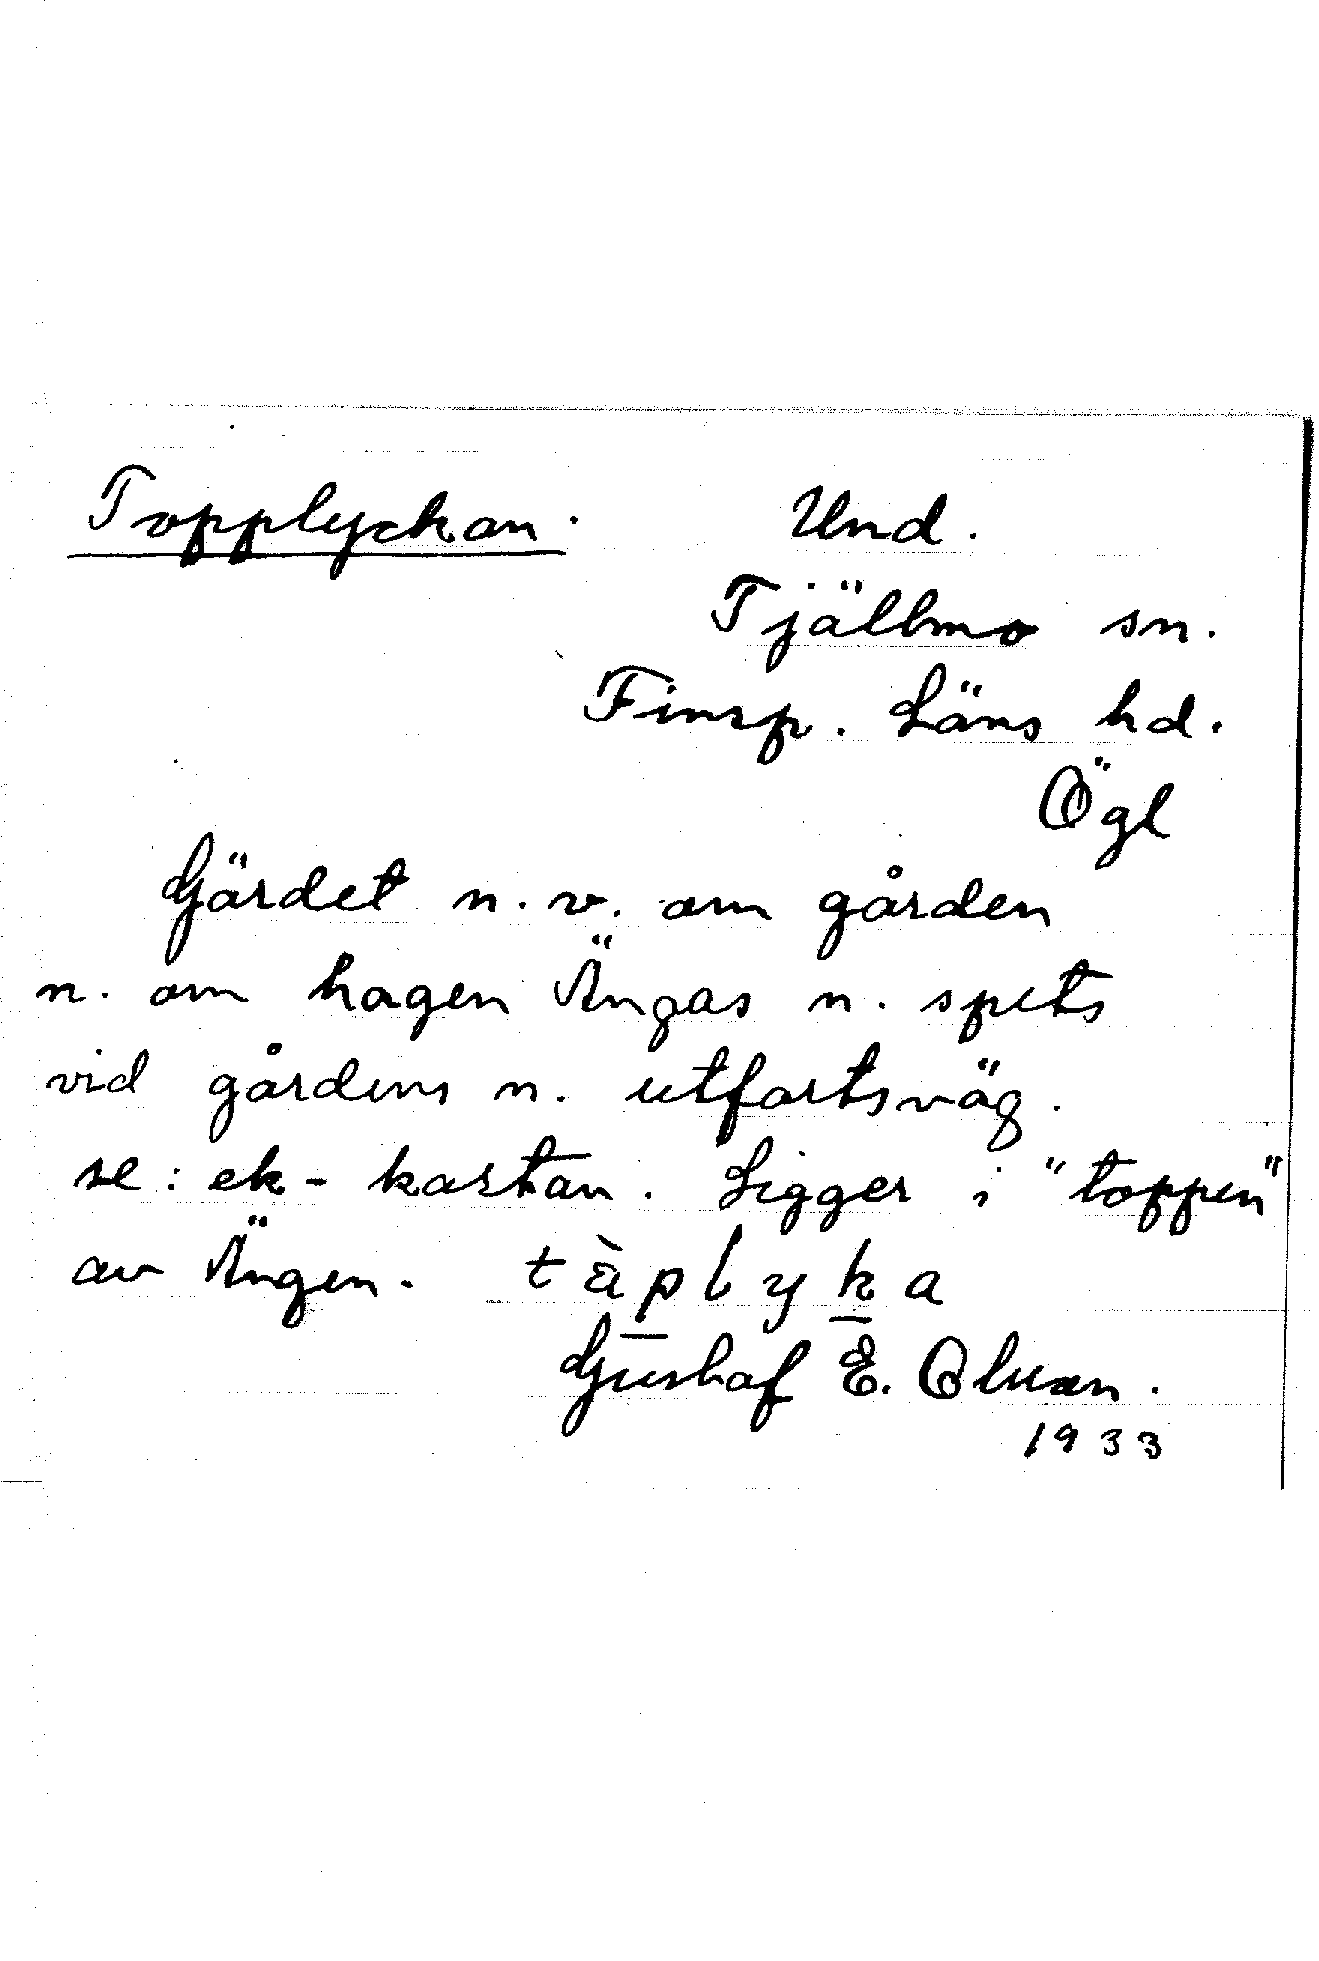 Topplyckan. Und.
Tjällmo sn.
Finsp. Läns hd.
Ögl
Gärdet n.v. om gården
n. om hagen Ängas n. spets
vid gårdens n. utfartsväg.
se: ek-kartan. Ligger i "toppen"
av Ängen. tàplyka
Gustaf E. Olsson.
1933